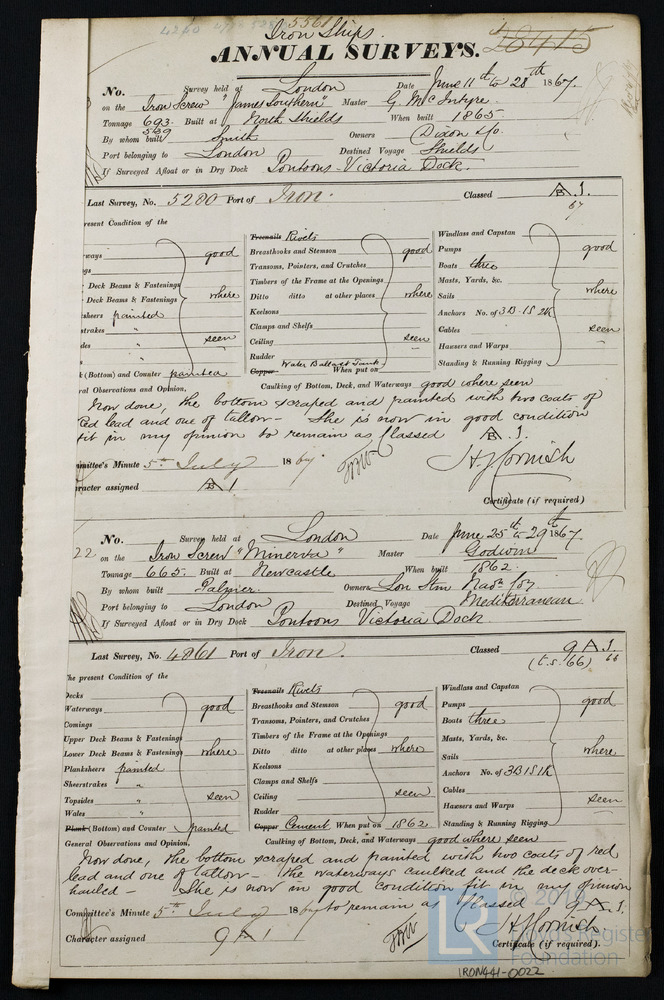 5561
Iron Ships.
28415
ANNUAL SURVEYS.
No. Survey held at London Date June 11th to 28th 1867.
on the Iron Screw "James Southern" Master G. McIntyre.
Tonnage 693. 539 Built at North Shields When built 1865
By whom built Smith Owners Dixon & Co.
Port belonging to London Destined Voyage Shields
If Surveyed Afloat or in Dry Dock Pontoons - Victoria Dock.
Last Survey, No. 5200 Port of Iron. Classed A.1. 67
resent Condition of the
Treenails Rivets
Windlass and Capstan
rways good
Breasthooks and Stemson good
Pumps good
ngs
Transoms, Pointers, and Crutches
Boats three
Deck Beams & Fastenings
Timbers of the Frame at the Openings
Masts, Yards, &c.
Deck Beams & Fastenings where
Ditto ditto at other places where
Sails where
sheers painted
Keelsons
Anchors No. of 3B.1S 2K
strakes "
Clamps and Shelfs
Cables seen
des " seen
Ceiling seen
Hawsers and Warps
"
Rudder
Standing & Running Rigging
k (Bottom) and Counter painted
Copper Water Ballast Tank When put on
ral Observations and Opinion, Caulking of Bottom, Deck, and Waterways good where seen
Now done, the bottom scraped and painted with two coats of
red lead and one of tallow - She is now in good condition
fit in my opinion to remain as Classed A.1.
mmittee's Minute 5th July 1867.
H. J. Cornish
aracter assigned A 1
Certificate (if required)
22
No. Survey held at London Date June 25th to 29th 1867.
on the Iron Screw "Minerva" Master Godwin
Tonnage 665. Built at Newcastle When built 1862.
By whom built Palmer. Owners Lon Stm Navn Coy
Port belonging to London Destined Voyage Mediterranean
If Surveyed Afloat or in Dry Dock Pontoons Victoria Dock
Last Survey, No. 4861 Port of Iron. Classed 9 A.1.
(t.s. 66) 66
he present Condition of the
Decks
Treenails Rivets
Windlass and Capstan
Waterways good
Breasthooks and Stemson good
Pumps good
Comings
Transoms, Pointers, and Crutches
Boats three
Upper Deck Beams & Fastenings
Timbers of the Frame at the Openings
Masts, Yards, &c.
Lower Deck Beams & Fastenings where
Ditto ditto at other places where
Sails where
Planksheers painted
Keelsons
Anchors No. of 3B1S1K
Sheerstrakes "
Clamps and Shelfs
Cables
Topsides " seen
Ceiling seen
Hawsers and Warps seen
Wales "
Rudder
Standing & Running Rigging
Plank (Bottom) and Counter painted
Copper Cement When put on 1862
General Observations and Opinion, Caulking of Bottom, Deck, and Waterways good where seen
Now done, the bottom scraped and painted with two coats of red
lead and one of tallow - the waterways caulked and the deck over-
hauled - She is now in good condition fit in my opinion
Committee's Minute 5th July 1867 to remain as Classed 9 A.1.
H. J. Cornish
Character assigned 9 A 1
Certificate (if required).
LR
© 2019
Lloyd's Register
Foundation
IRON441-0022